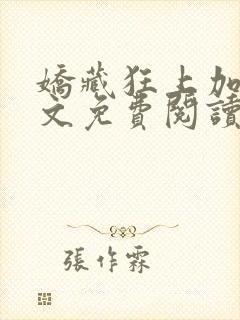 嬌藏狂上加
文免費閱讀
張作霖